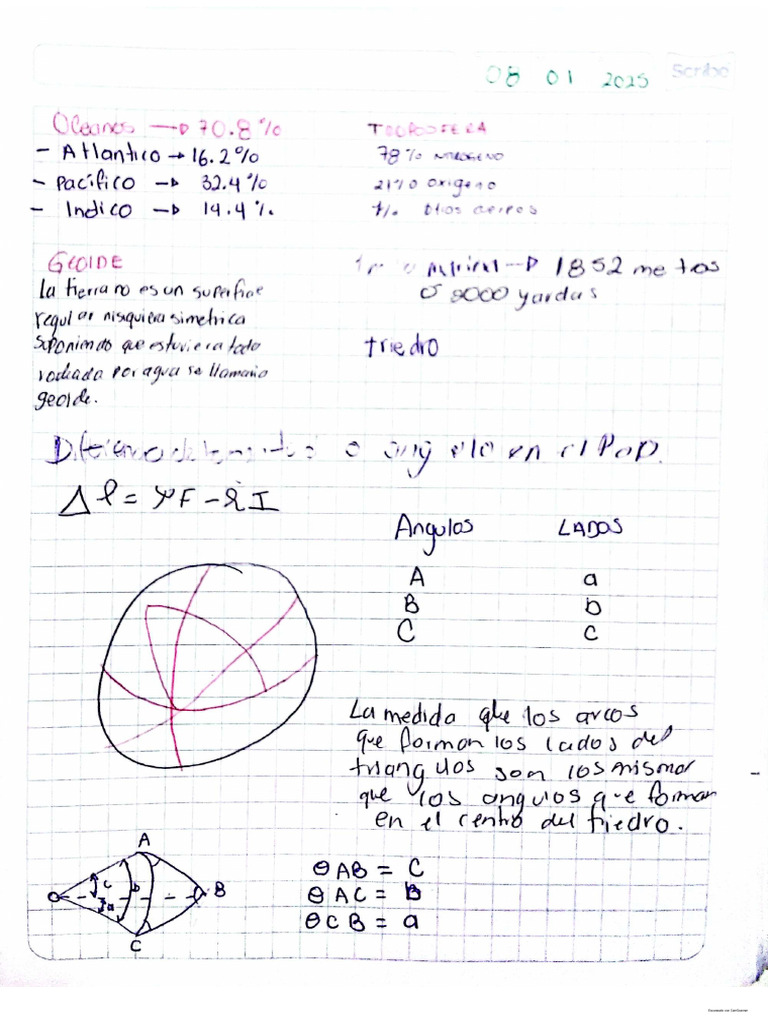 08 01 2025 Scribe
Oceanos → 70.8%
- Atlantico → 16.2%
- Pacífico → 32.4%
- Indico → 14.4%
TROPOSFERA
78% NITROGENO
21% oxigeno
1% Otros aereos
GEOIDE
la tierra no es un superficie
regular nisiquiera simetrica
suponiendo que estuviera todo
rodiada por agua se llamaria
geoide.
→ 1852 metros
ó 2000 yardas
triedro
Diferencia de longitud o angulo en el Polo.
Δl = F - I
Angulos LADOS
A a
B b
C c
La medida que los arcos
que forman los lados del
triangulos son los mismos
que los angulos que forman
en el centro del triedro.
A
c b
B
a
C
θAB = C
θAC = B
θCB = a